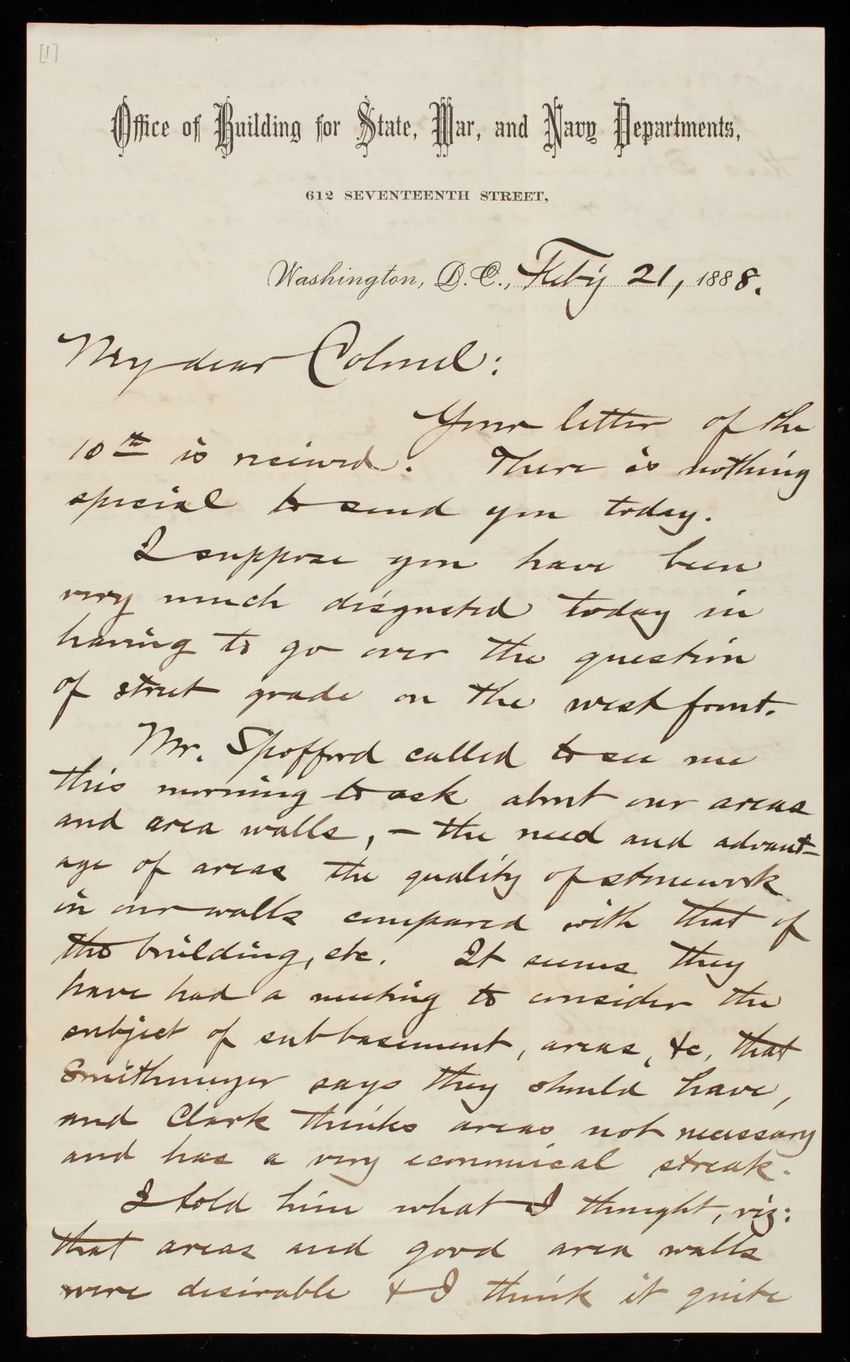 [1]
Office of Building for State, War, and Navy Departments,
612 SEVENTEENTH STREET,
Washington, D. C., Feb'y 21, 1888.
My dear Colonel:
Your letter of the
10th is received. There is nothing
special to send you today.
I suppose you have been
very much disgusted today in
having to go over the question
of street grade on the west front.
Mr. Spofford called to see me
this morning to ask about our areas
and area walls, – the need and advant-
age of areas the quality of stonework
in our walls compared with that of
the building, etc. It seems they
have had a meeting to consider the
subject of subbasement, areas, &c, that
Smithmeyer says they should have,
and Clark thinks areas not necessary
and has a very economical streak.
I told him what I thought, viz:
that areas and good area walls
were desirable & I think it quite